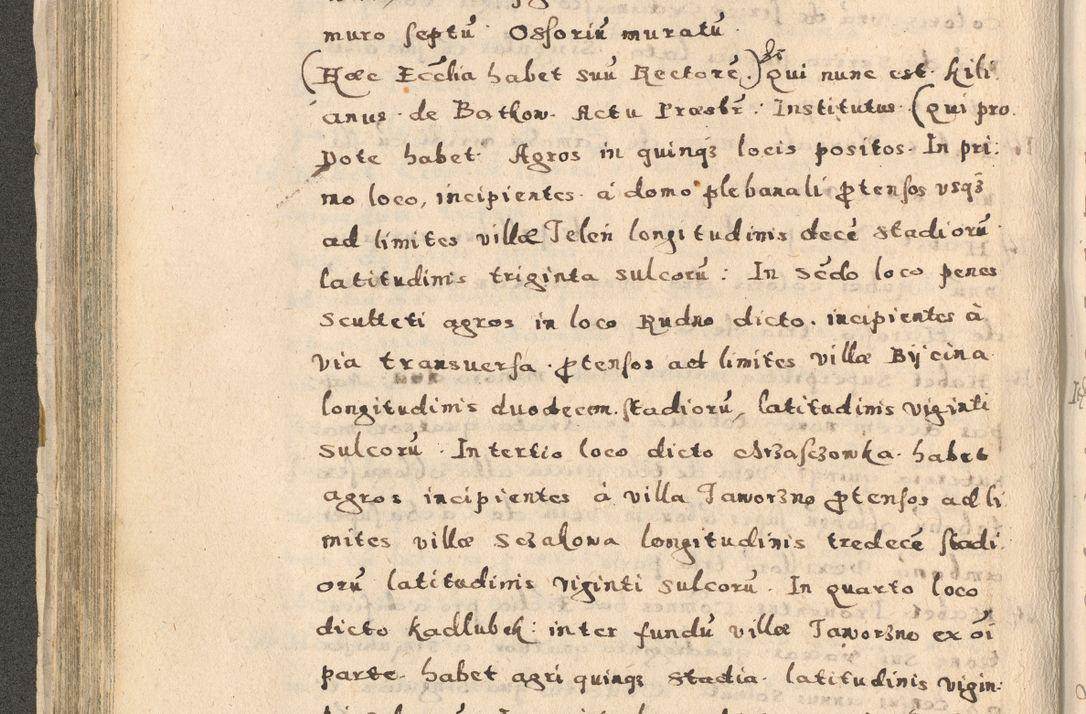 muro septū Ossoriū muratū
(Haec Ecclīa habet suū Rectorē.) Qui nunc est Kili
anus de Botkow Actu Præsbr̄: Institutus (qui pro
Dote habet Agros in quinqȝ locis positos. In pri:
mo loco, incipientes a domo plebanali ꝓtensos vsqȝ
ad limites villæ Jeleń longitudinis decē stadiorū
latitudinis triginta sulcorū: In Scdō loco penes
Sculteti agros in loco Rudno dicto. incipientes à
via transuersa ꝓtensos ad limites villæ Byċina
longitudinis duodecem. stadiorū latitudinis viginti
sulcorū In tertio loco dicto habet
agros incipientes à villa Jaworzno ꝓtensos ad li
mites villæ Sczakowa longitudinis tredecē stadi
orū latitudinis viginti sulcorū. In quarto loco
dicto Kadlubek: inter fundū villæ Jaworzno ex oī
parte. habet agri quinqȝ stadia. latitudinis vigin: